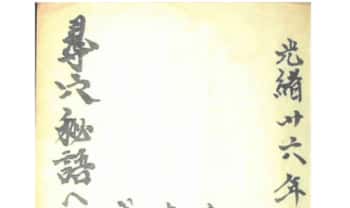 光緒廿六年
尋穴秘語